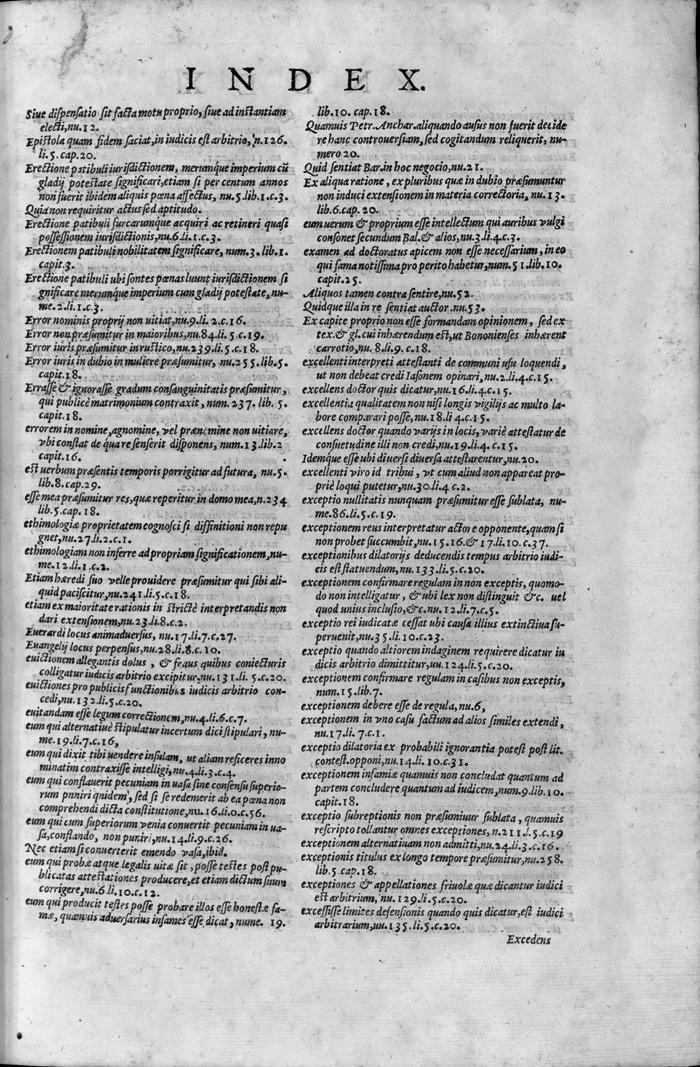 INDEX.
Siue dispensatio sit facta motu proprio, siue ad instantiam
electi, nu.12.
Epistola quam fidem faciat, in iudicis est arbitrio, n.126.
li.5.cap.20.
Erectione patibuli iurisdictionem, merumque imperium cū
gladij potestate significari, etiam si per centum annos
non fuerit ibidem aliquis pœna affectus, nu.5.lib.1.c.3.
Quia non requiritur actus sed aptitudo.
Erectione patibuli furcarumque acquiri ac retineri quasi
possessionem iurisdictionis, nu.6.li.1.c.3.
Erectionem patibuli nobilitatem significare, num.3.lib.1.
capit.3.
Erectione patibuli ubi sontes pœnas luunt iurisdictionem si
gnificare merumque imperium cum gladij potestate, nu-
me.2.li.1.c.3.
Error nominis proprij non uitiat, nu.9.li.2.c.16.
Error non præsumitur in maioribus, nu.84.li.5.c.19.
Error iuris præsumitur in rustico, nu.239.li.5.c.18.
Error iuris in dubio in muliere præsumitur, nu.255.lib.5.
capit.18.
Errasse & ignorasse gradum consanguinitatis præsumitur,
qui publicè matrimonium contraxit, num.237.lib.5.
capit.18.
errorem in nomine, agnomine, vel prænomine non uitiare,
vbi constat de qua re senserit disponens, num.13.lib.2
capit.16.
est uerbum præsentis temporis porrigitur ad futura, nu.5.
lib.8.cap.29.
esse mea præsumitur res, quæ reperitur in domo mea, n.234
lib.5.cap.18.
ethimologiæ proprietatem cognosci si diffinitioni non repu
gnet, nu.27.li.2.c.1.
ethimologiam non inferre ad propriam significationem, nu-
me.12.li.1.c.2.
Etiam hæredi suo velle prouidere præsumitur qui sibi ali-
quid paciscitur, nu.241.li.5.c.18.
etiam ex maioritate rationis in strictè interpretandis non
dari extensionem, nu.23.li.8.c.2.
Euerardi locus animaduersus, nu.17.li.7.c.27.
Euangelij locus perpensus, nu.28.li.8.c.10.
euictionem allegantis dolus, & fraus quibus coniecturis
colligatur iudicis arbitrio excipitur, nu.131.li.5.c.20.
euictiones pro publicis functionibus iudicis arbitrio con-
cedi, nu.132.li.5.c.20.
euitandam esse legum correctionem, nu.4.li.6.c.7.
eum qui alternatiuè stipulatur incertum dici stipulari, nu-
me.19.li.7.c.16,
eum qui dixit tibi uendere insulam, ut aliam reficeres inno
minatim contraxisse intelligi, nu.4.li.3.c.4.
eum qui conflauerit pecuniam in uasa sine consensu superio-
rum puniri quidem, sed si se redemerit ab ea pœna non
comprehendi dicta constitutione, nu.16.li.0.c.56.
eum qui cum superiorum venia conuertit pecuniam in ua-
sa, conflando, non puniri, nu.14.li.9.c.26.
Nec etiam si conuerterit emendo vasa, ibid.
eum qui probæ atque legalis uitæ sit, posse testes post pu-
blicatas attestationes producere, et etiam dictum suum
corrigere, nu.6.li.10.c.12.
eum qui producit testes posse probare illos esse honestæ fa-
mæ, quamuis aduersarius infames esse dicat, nume. 19.
lib.10. cap.18.
Quamuis Petr. Anchar. aliquando ausus non fuerit decide
re hanc controuersiam, sed cogitandum reliquerit, nu-
mero 20.
Quid sentiat Bar. in hoc negocio, nu.21.
Ex aliqua ratione, ex pluribus quæ in dubio præsumuntur
non induci extensionem in materia correctoria, nu.13.
lib.6.cap.20.
eum uerum & proprium esse intellectum qui auribus vulgi
consonet secundum Bal. & alios, nu.3.li.4.c.3.
examen ad doctoratus apicem non esse necessarium, in eo
qui fama notissima pro perito habetur, num.51.lib.10.
capit.25.
Aliquos tamen contra sentire, nu.52.
Quidque illa in re sentiat auctor. nu.53.
Ex capite proprio non esse formandam opinionem, sed ex
tex. & gl. cui inhærendum est, ut Bononienses inhærent
carrotio, nu.8.li.9.c.18.
excellenti interpreti attestanti de communi usu loquendi,
ut non debeat credi Iasonem opinari, nu.2.li.4.c.15.
excellens doctor quis dicatur, nu.16.li.4.c.15.
excellentiæ qualitatem non nisi longis vigilijs ac multo la-
bore comparari posse, nu.18.li.4.c.15.
excellens doctor quando varijs in locis, variè attestatur de
consuetudine illi non credi, nu.19.li.4.c.15.
Idemque esse ubi diuersi diuersa attestarentur, nu.20.
excellenti viro id tribui, vt cum aliud non appareat pro-
priè loqui putetur, nu.30.li.4.c.2.
exceptio nullitatis nunquam præsumitur esse sublata, nu-
me.86.li.5.c.19.
exceptionem reus interpretatur actore opponente, quam si
non probet succumbit, nu.15.16.& 17.li.10.c.37.
exceptionibus dilatorijs deducendis tempus arbitrio iudi-
cis est statuendum, nu.133.li.5.c.20.
exceptionem confirmare regulam in non exceptis, quomo-
do non intelligatur, & ubi lex non distinguit &c. uel
quod unius inclusio, &c. nu.12.li.7.c.5.
exceptio rei iudicatæ cessat ubi causa illius extinctiua su-
peruenit, nu.35.li.10.c.23.
exceptio quando altiorem indaginem requirere dicatur iu
dicis arbitrio dimittitur, uu.124.li.5.c.20.
exceptionem confirmare regulam in casibus non exceptis,
num.15.lib.7.
exceptionem debere esse de regula, nu.6,
exceptionem in vno casu factum ad alios similes extendi,
nu.17.li.7.c.1.
exceptio dilatoria ex probabili ignorantia potest post lit.
contest. opponi, nu.14.li.10.c.31.
exceptionem infamiæ quamuis non concludat quantum ad
partem concludere quantum ad iudicem, num.9.lib.10.
capit.18.
exceptio subreptionis non præsumitur sublata, quamuis
rescripto tollantur omnes exceptiones, n.211.l.5.c.19
exceptionem alternatiuam non admitti, nu.24.li.3.c.16.
exceptionis titulus ex longo tempore præsumitur, nu.258.
lib.5.cap.18.
exceptiones & appellationes friuolæ quæ dicantur iudici
est arbitrium, nu.129.li.5.c.20.
excessisse limites defensionis quando quis dicatur, est iudici
arbitrarium, uu.135.li.5.c.20.
Excedens